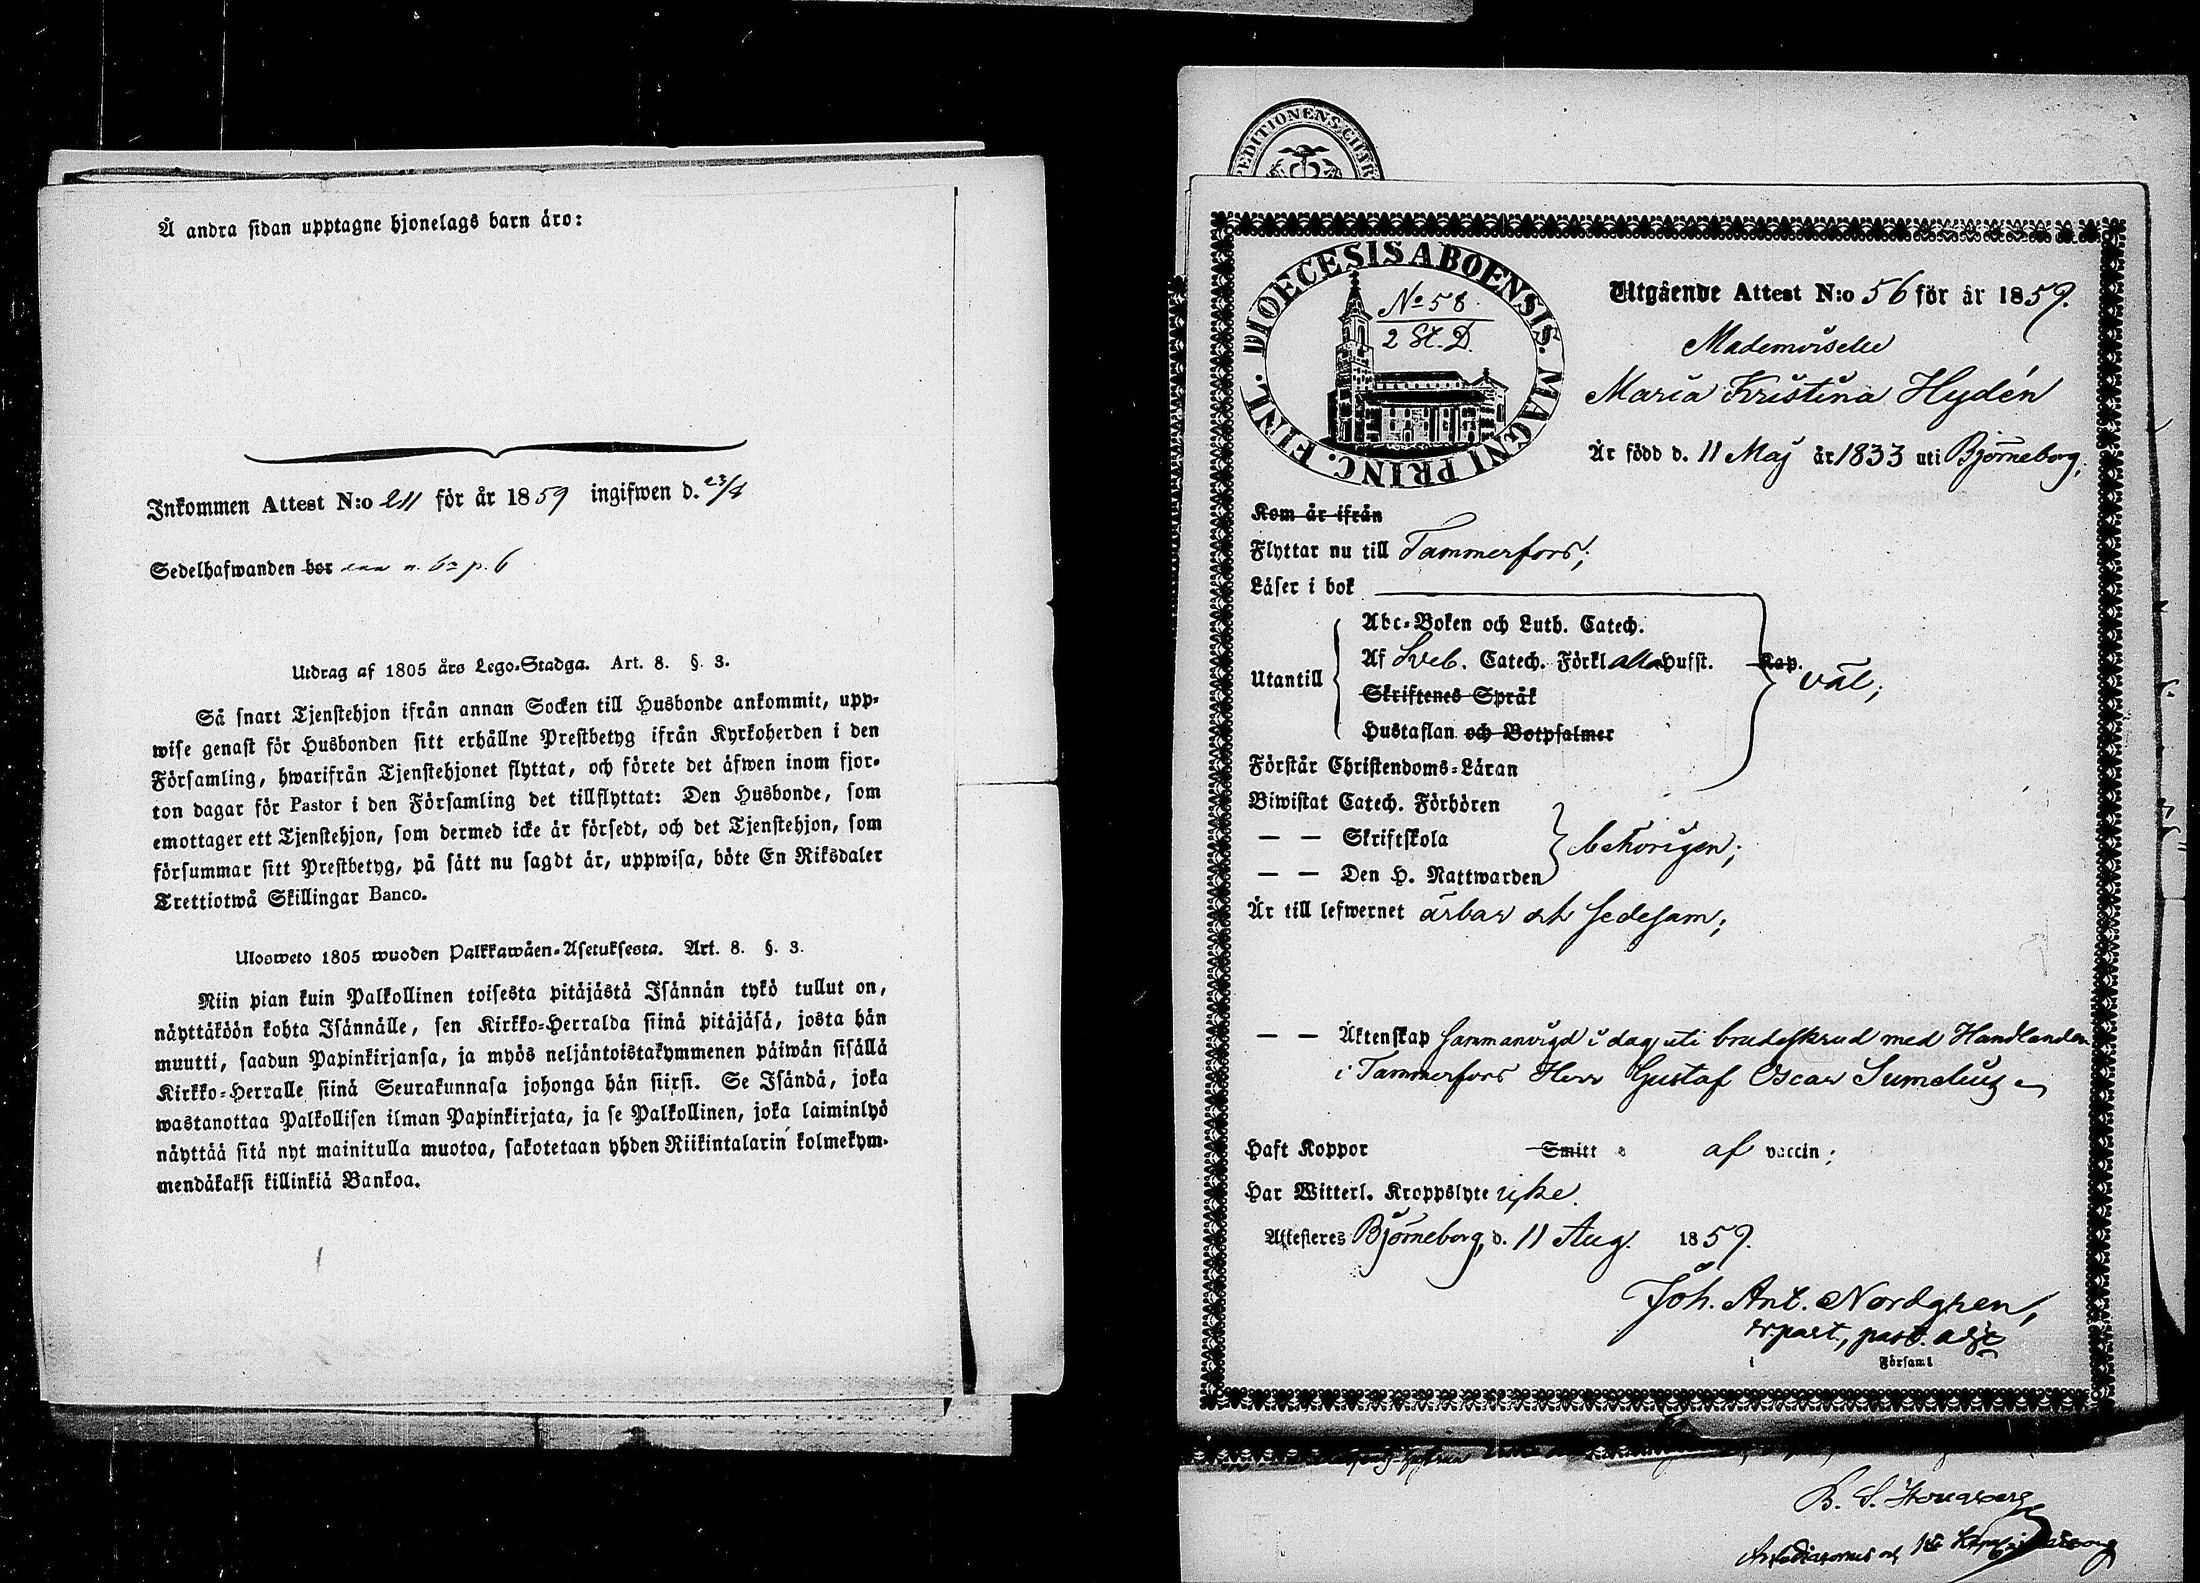 Å andra sidan upptagne hjonelags barn äro:
Inkommen Attest N:o 211 för år 1859 ingifwen d. 23/8
Sedelhafwanden bor p. 6
Utdrag af 1805 års Lego-Stadga. Art. 8. §. 3.
Så snart Tjenstehjon ifrån annan Socken till Husbonde ankommit, upp-
wise genast för Husbonden sitt erhållne Prestbetyg ifrån Kyrkoherden i den
Församling, hwarifrån Tjenstehjonet flyttat, och förete det äfwen inom fjor-
ton dagar för Pastor i den Församling det tillflyttat: Den Husbonde, som
emottager ett Tjenstehjon, som dermed icke är försedt, och det Tjenstehjon, som
försummar sitt Prestbetyg, på sätt nu sagdt är, uppwisa, böte En Riksdaler
Trettiotwå Skillingar Banco.
Ulosweto 1805 wuoden Palkkawäen-Asetuksesta. Art. 8. §. 3.
Niin pian kuin Palkollinen toisesta pitäjästä Isännän tykö tullut on,
näyttäköön kohta Isännälle, sen Kirkko-Herralda siinä pitäjäsä, josta hän
muutti, saadun Papinkirjansa, ja myös neljäntoistakymmenen päiwän sisällä
Kirkko-Herralle siinä Seurakunnasa johonga hän siirsi. Se Isändä, joka
wastanottaa Palkollisen ilman Papinkirjata, ja se Palkollinen, joka laiminlyö
näyttää sitä nyt mainitulla muotoa, sakotetaan yhden Riikintalarin kolmekym-
mendäkaksi killinkiä Bankoa.
EDITIONENS CHAR
DIOECESIS ABOENSIS. MAGNI PRINC. FINL.
No 58
2 St. D.
Utgående Attest N:o 56 för år 1859.
Mademoiselle
Maria Kristina Hydén
Är född d. 11 Maj år 1833 uti Björneborg,
Kom år ifrån
Flyttar nu till Tammerfors;
Läser i bok
Utantill
Abc-Boken och Luth. Catech.
Af Sveb. Catech. Förkl alla Hufst. Kap.
Skriftenes Språk
Hustaflan och Botpsalmer
väl;
Förstår Christendoms-Läran
Biwistat Catech. Förhören
— — Skriftskola
— — Den H. Nattwarden
behörigen;
Är till lefwernet ärbar och sedesam;
— — Äktenskap sammanvigd i dag uti brudeskrud med Handlanden
i Tammerfors Herr Gustaf Oscar Sumelius
Haft Koppor Smitt af vaccin;
Har Witterl. Kroppslyte icke.
Attesteres Björneborg, d. 11 Aug. 1859.
Joh. Ant. Nordgren,
v. past., past. adj.
i Församl
B. S.